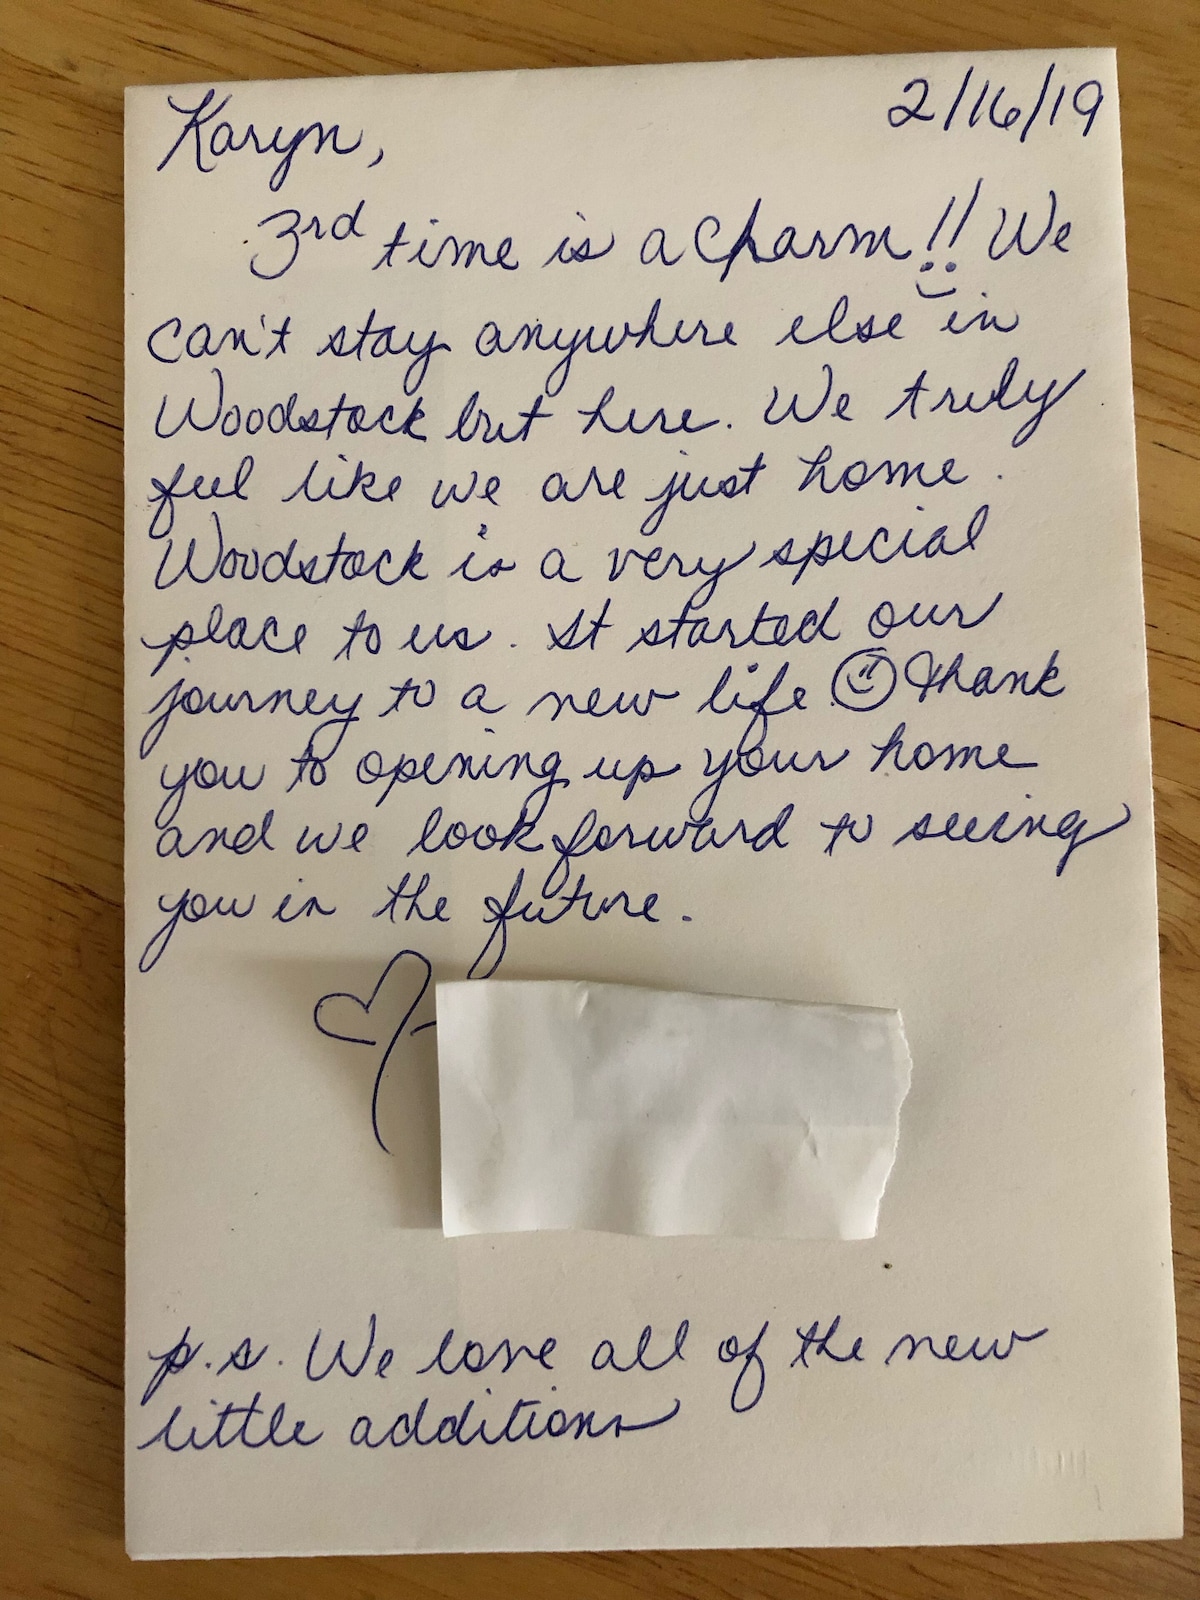 2/16/19
Karyn,
3rd time is a charm!! We
can't stay anywhere else in
Woodstock but here. We truly
feel like we are just home.
Woodstock is a very special
place to us. It started our
journey to a new life. Thank
you to opening up your home
and we look forward to seeing
you in the future.
p.s. We love all of the new
little additions